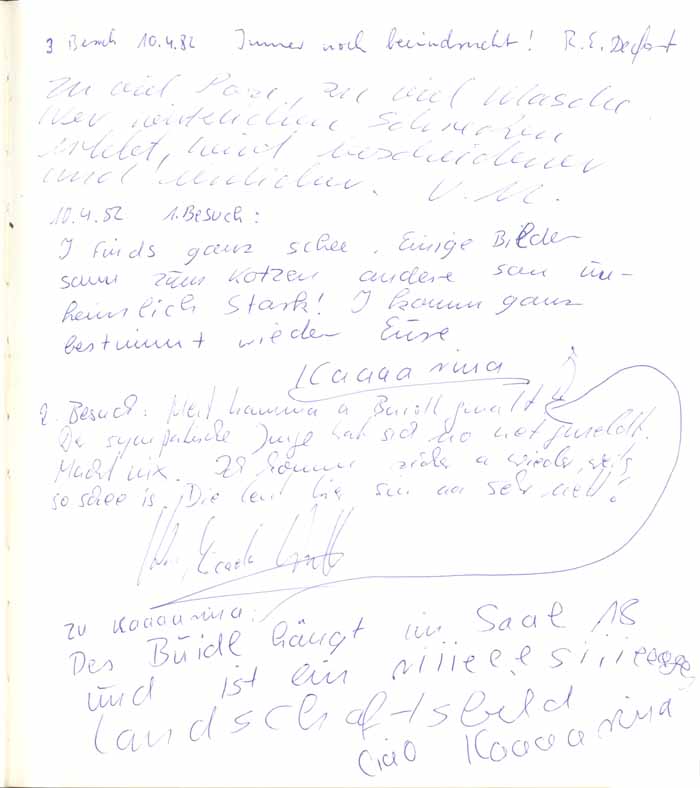 3 Besuch 10.4.82 Immer noch beeindruckt! R.E.
Zu viel Pose, zu viel Maske
Wer wirklichen Schrecken
erlebt, wird bescheidener
und
V.M.
10.4.82 1. Besuch:
I finds ganz schee. Einige Bilder
sann zum Kotzen andere san un-
heimlich Stark! I komm ganz
bestimmt wieder Eure
Kaaaarina
2. Besuch: Heit hamma a Buidl gmalt
Der sympatische Junge hat sich no net gmeldt.
Macht nix. Ich komme wieder, weils
so schee is. Die Leut hier sin aa sehr nett!
zu Kaaaarina:
Des Buidl hängt im Saal 18
und ist ein
Landschaftsbild
Ciao Kaaaarina